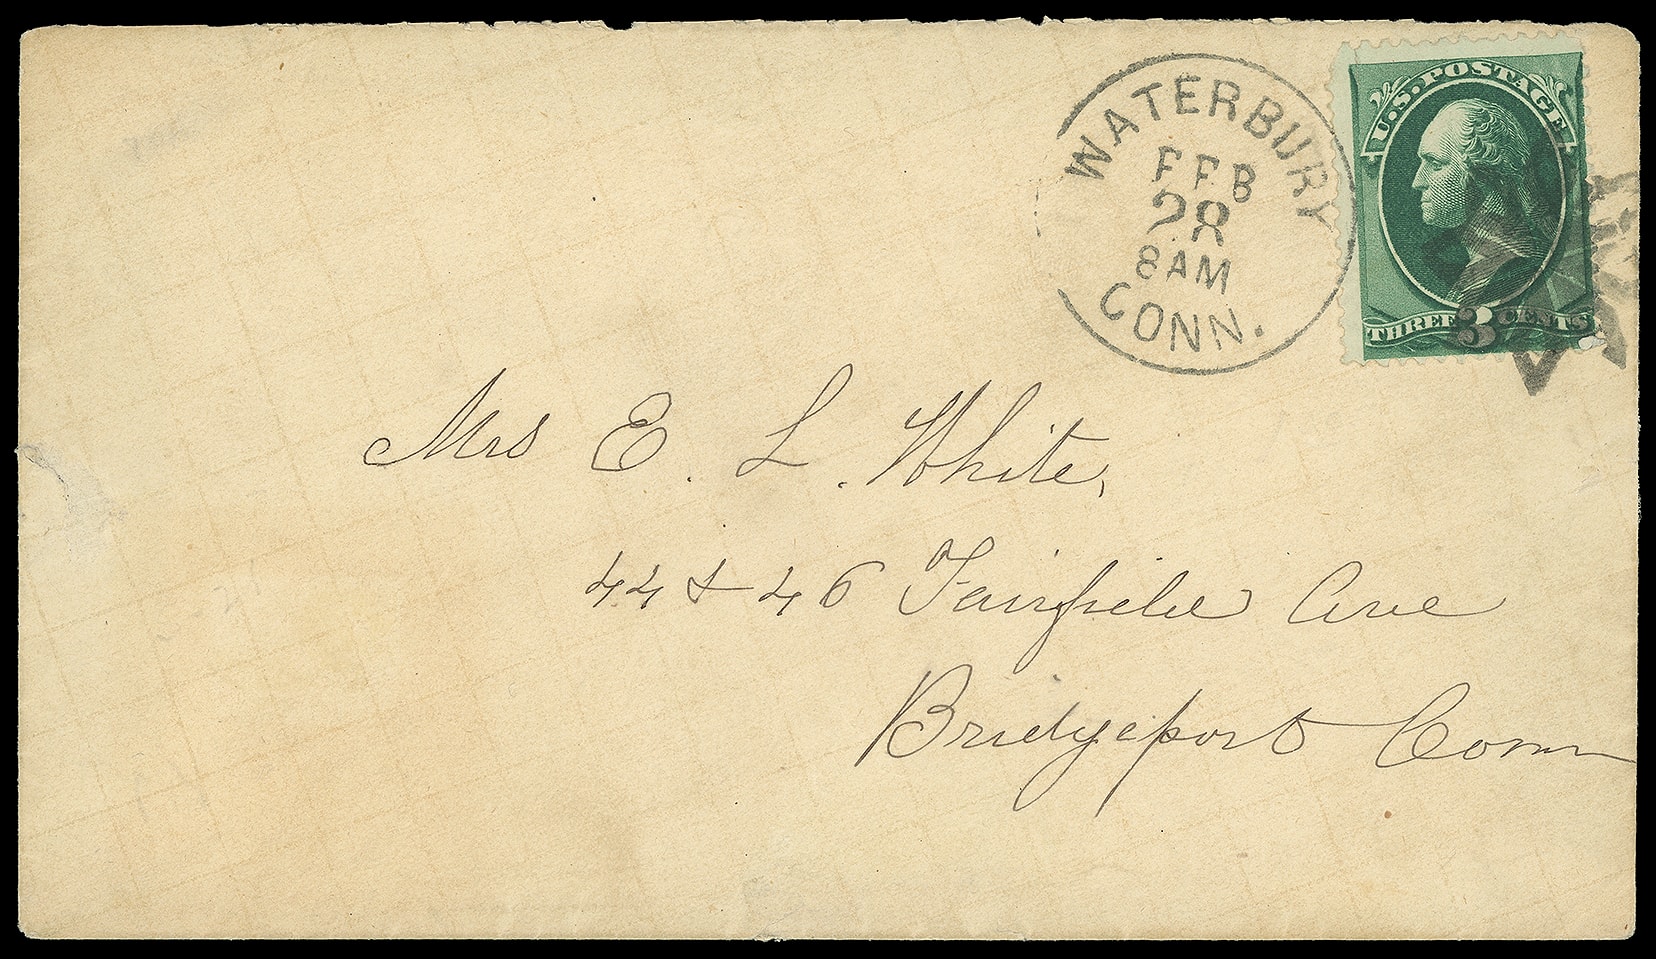 WATERBURY
FEB
28
8 AM
CONN.
U.S. POSTAGE
THREE 3 CENTS
Mrs E. L. White,
44 & 46 Fairfield Ave
Bridgeport Conn